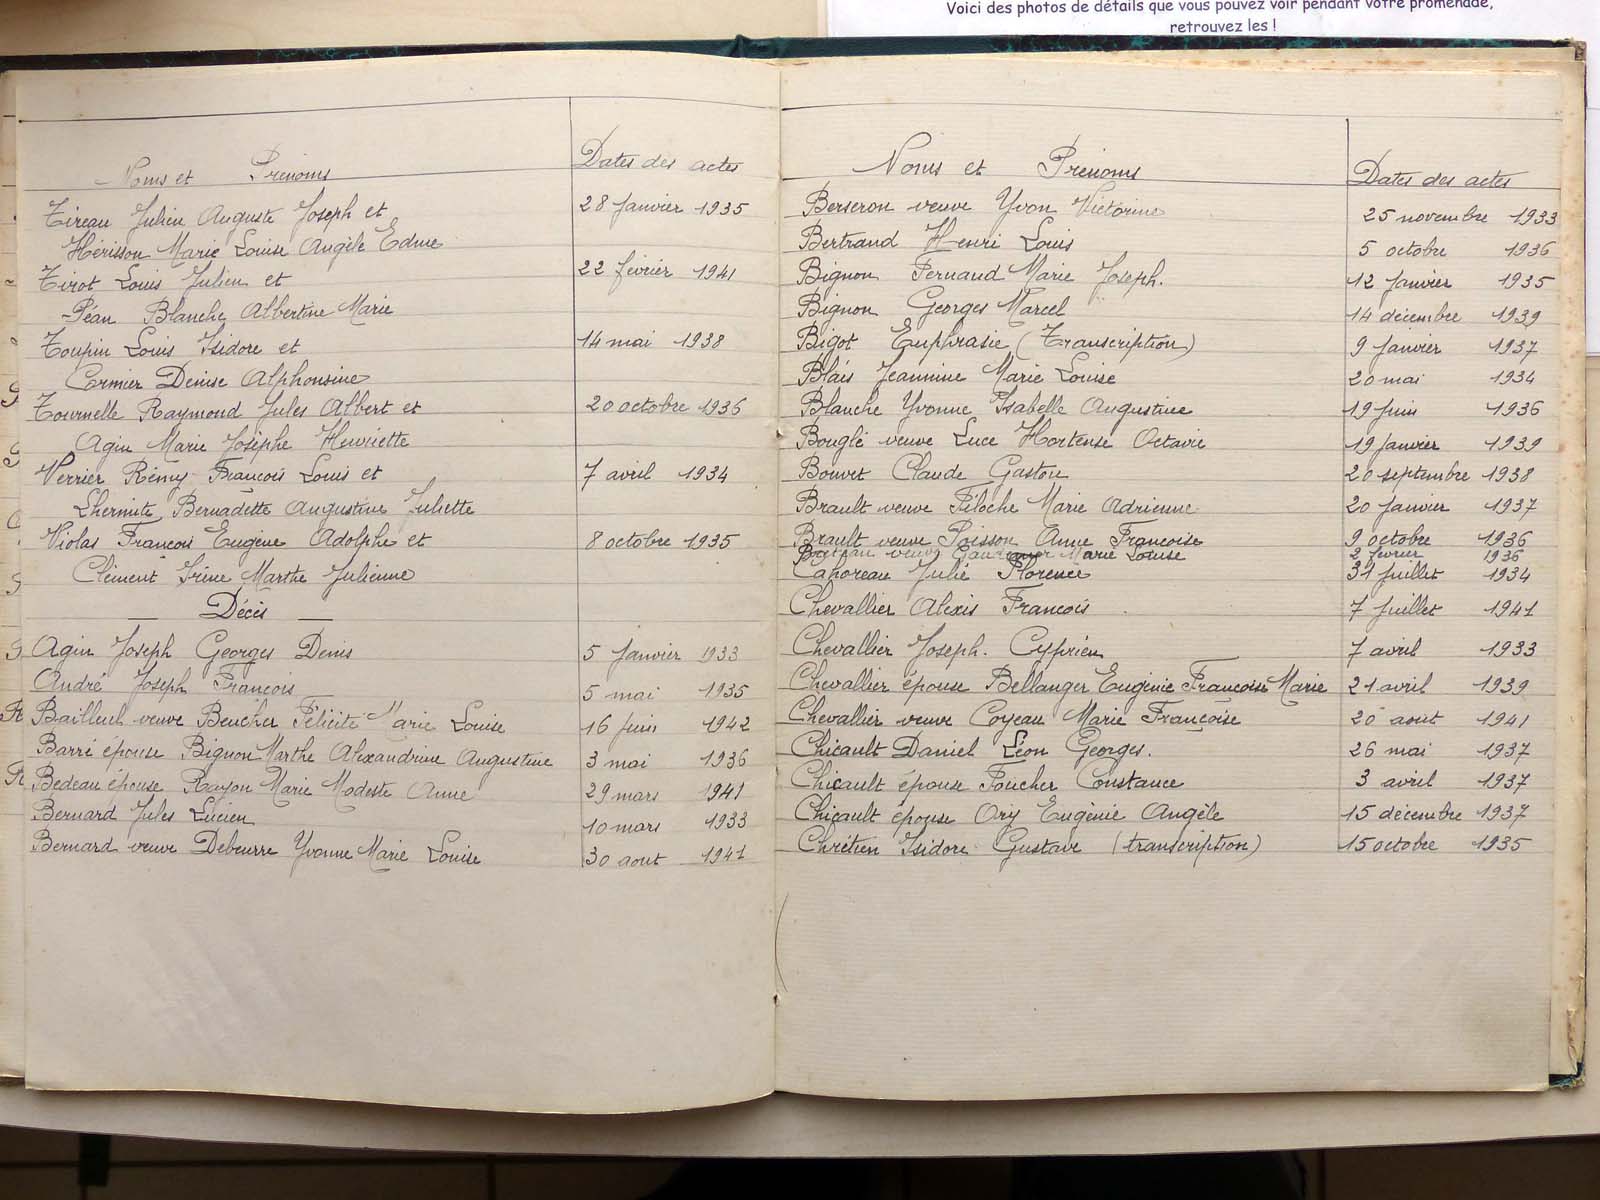 Voici des photos de détails que vous pouvez voir pendant votre promenade,
retrouvez les !
Noms et Prénoms Dates des actes
Tireau Julien Auguste Joseph et 28 Janvier 1935
Hérisson Marie Louise Angèle Edme
Tirot Louis Julien et 22 février 1941
Péan Blanche Albertine Marie
Toupin Louis Isidore et 14 mai 1938
Cormier Denise Alphonsine
Tournelle Raymond Jules Albert et 20 octobre 1936
Agin Marie Josèphe Henriette
Verrier Rémy François Louis et 7 avril 1934
Lhermite Bernadette Augustine Juliette
Violas François Eugène Adolphe et 8 octobre 1935
Clément Irène Marthe Julienne
Décès
Agin Joseph Georges Denis 5 Janvier 1933
André Joseph François 5 mai 1935
Bailleul veuve Beucher Félicité Marie Louise 16 Juin 1942
Barré épouse Bignon Marthe Alexandrine Augustine 3 mai 1936
Bedeau épouse Rayon Marie Modeste Anne 29 mars 1941
Bernard Jules Lucien 10 mars 1933
Bernard veuve Debeurre Yvonne Marie Louise 30 aout 1941
Noms et Prénoms Dates des actes
Berseron veuve Yvon Victorine 25 novembre 1933
Bertrand Henri Louis 5 octobre 1936
Bignon Fernand Marie Joseph. 12 Janvier 1935
Bignon Georges Marcel 14 décembre 1939
Bigot Euphrasie (Transcription) 9 Janvier 1937
Blais Jeannine Marie Louise 20 mai 1934
Blanche Yvonne Isabelle Augustine 19 Juin 1936
Bouglé veuve Luce Hortense Octavie 19 Janvier 1939
Bouvet Claude Gaston 20 septembre 1938
Brault veuve Filoche Marie Adrienne 20 Janvier 1937
Brault veuve Poisson Anne Françoise 9 octobre 1936
veuve Marie Louise 2 février 1936
Cahoreau Julie Florence 31 Juillet 1934
Chevallier Alexis François 7 Juillet 1941
Chevallier Joseph. Cyprien 7 avril 1933
Chevallier épouse Bellanger Eugénie Françoise Marie 21 avril 1939
Chevallier veuve Coyeau Marie Françoise 20 aout 1941
Chicault Daniel Léon Georges. 26 mai 1937
Chicault épouse Foucher Constance 3 avril 1937
Chicault épouse Ory Eugénie Angèle 15 décembre 1937
Chrétien Isidore Gustave (transcription) 15 octobre 1935